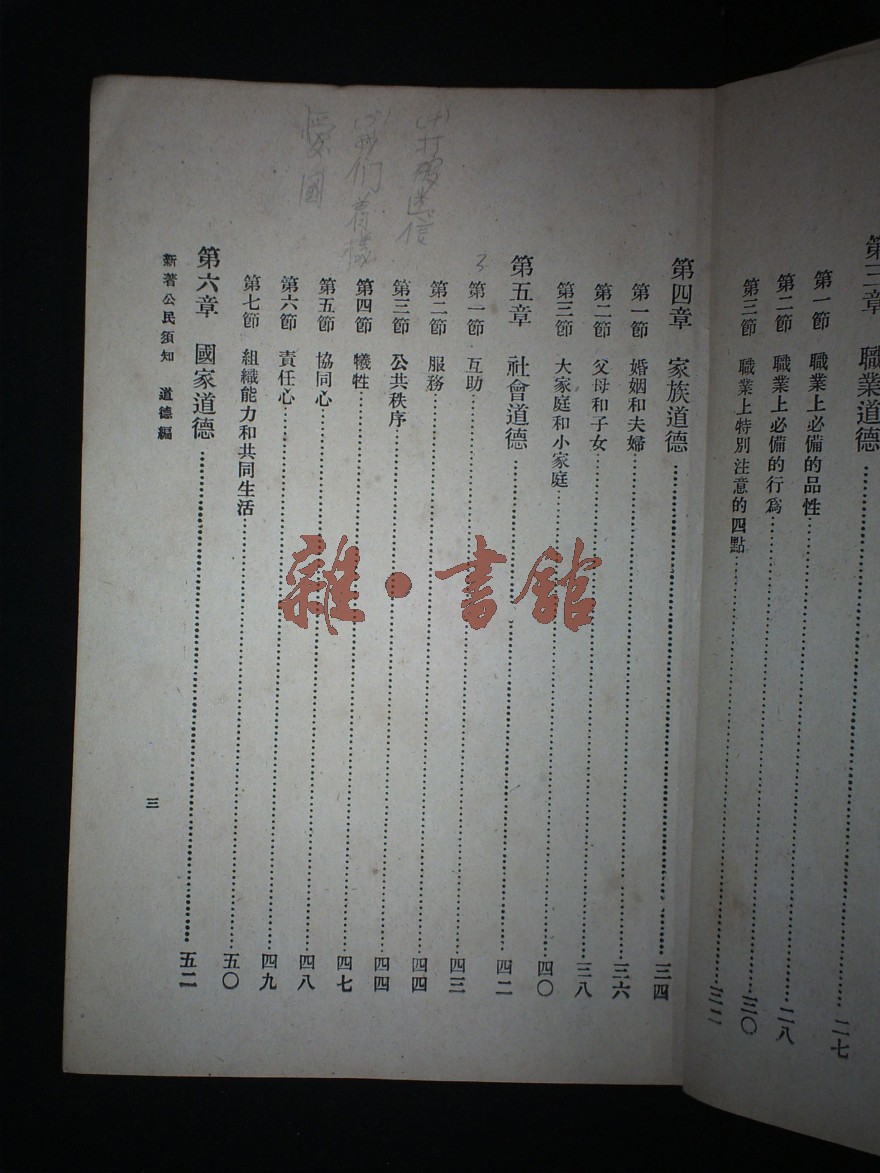 第三章 職業道德……二七
第一節 職業上必備的品性……二八
第二節 職業上必備的行爲……三〇
第三節 職業上特別注意的四點……三二
第四章 家族道德……三四
第一節 婚姻和夫婦……三六
第二節 父母和子女……三八
第三節 大家庭和小家庭……四〇
第五章 社會道德……四二
3
第一節 互助……四三
第二節 服務……四四
第三節 公共秩序……四四
第四節 犧牲……四七
第五節 協同心……四八
第六節 責任心……四九
第七節 組織能力和共同生活……五〇
第六章 國家道德……五二
新著公民須知 道德編
三
打破迷信
愛國
雜·書館